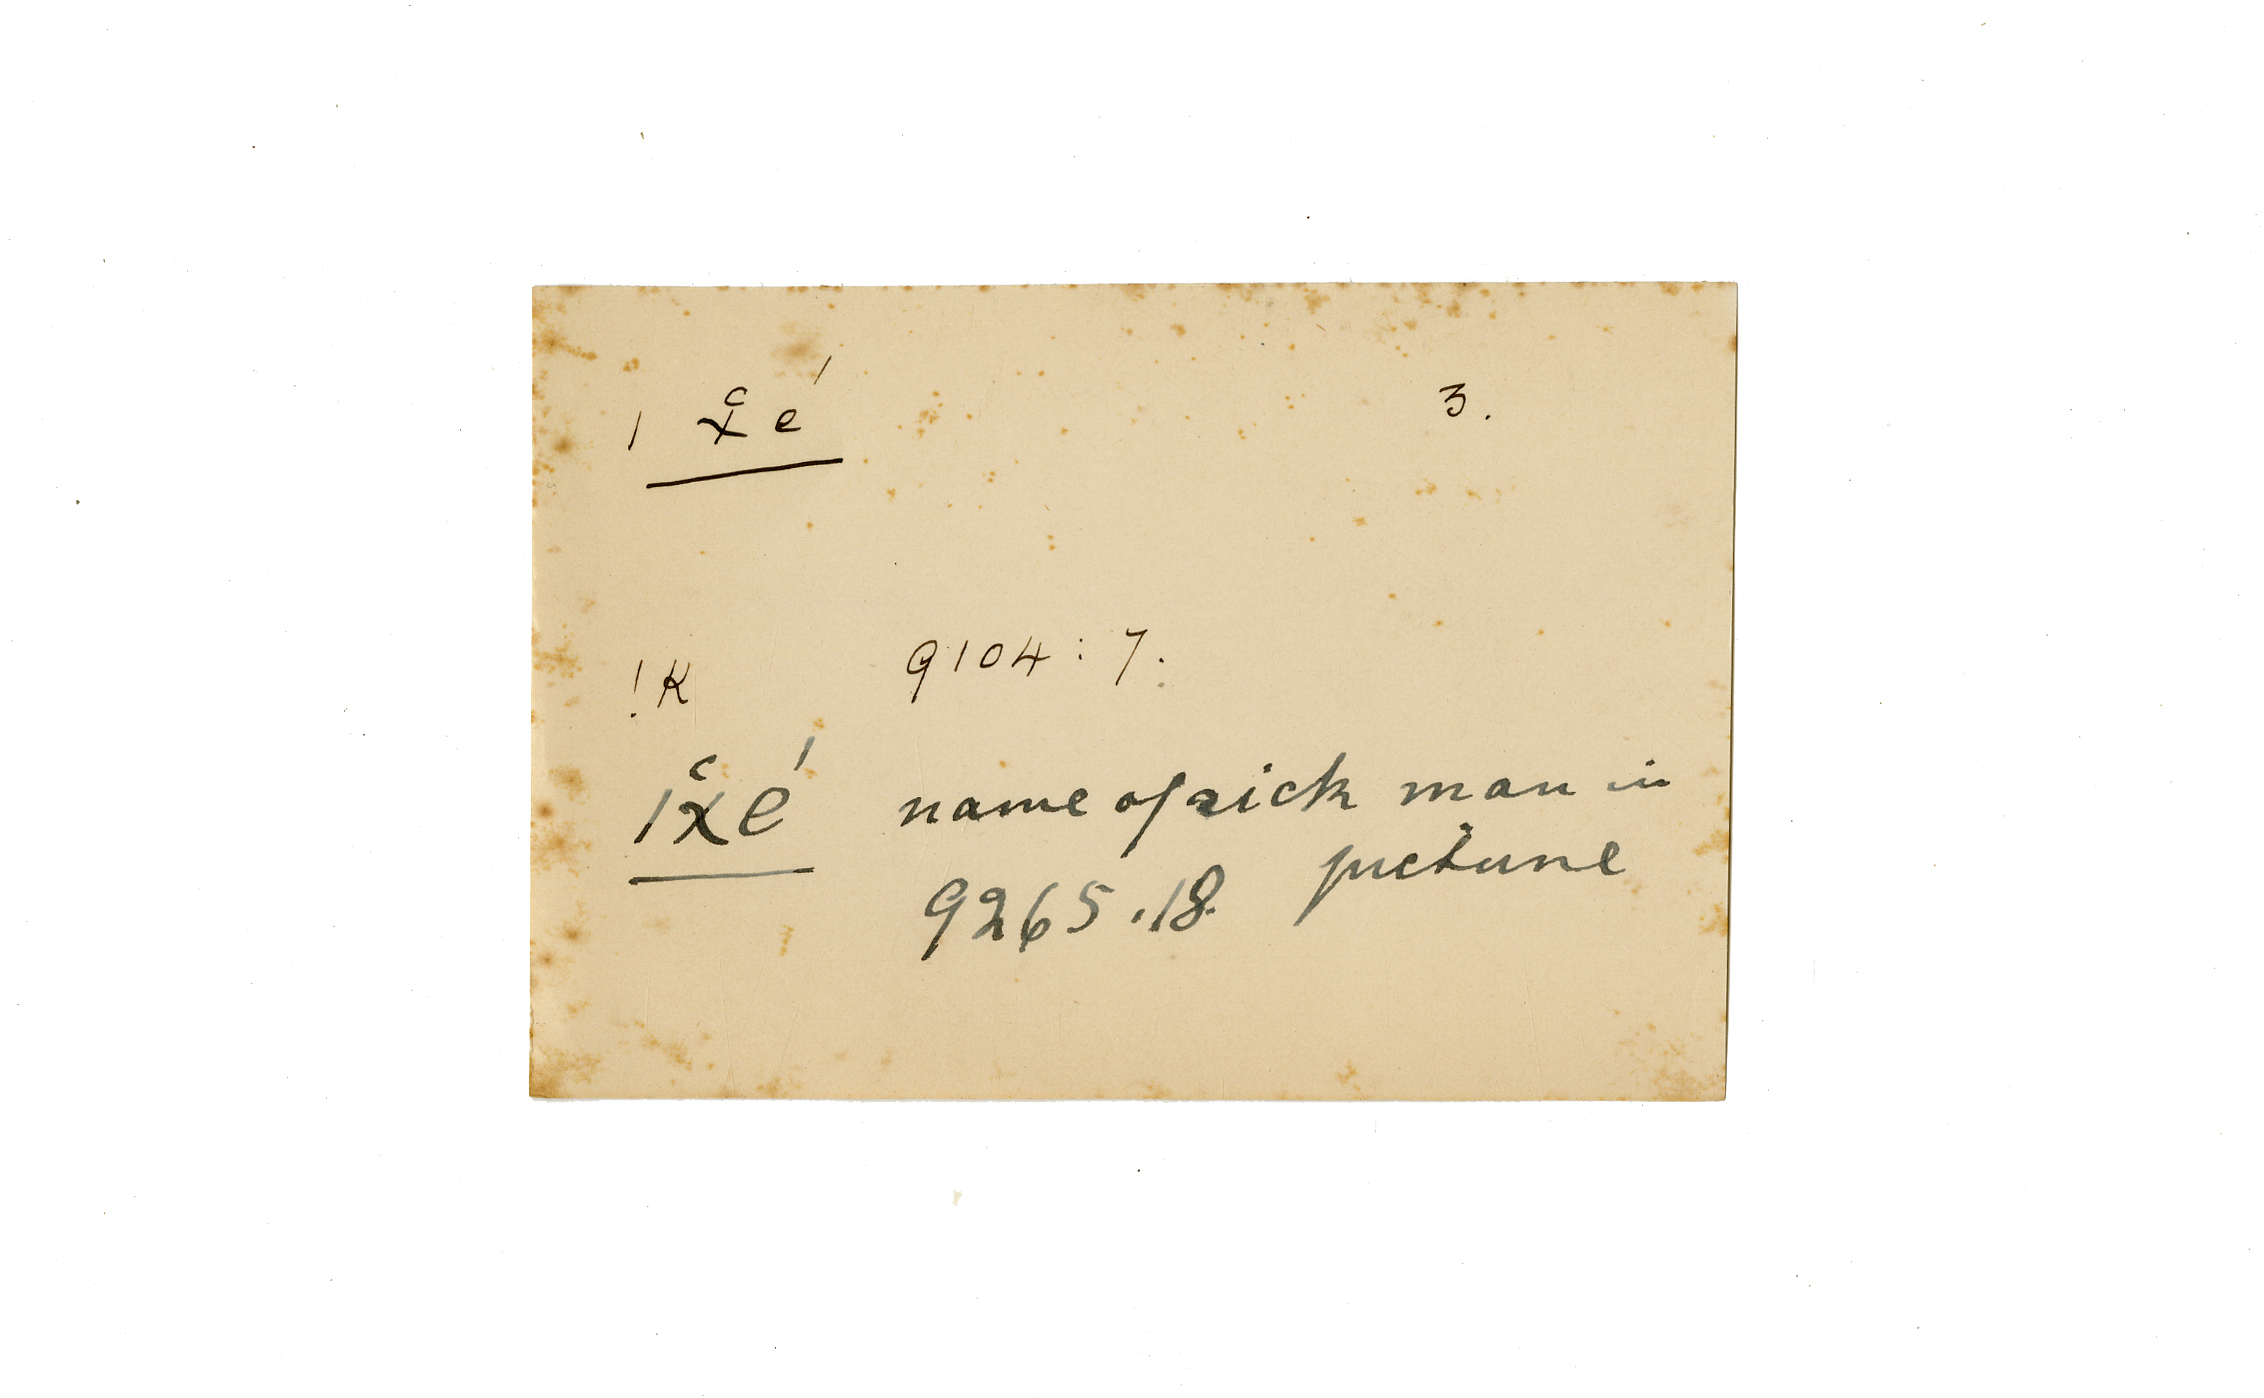 ǀ χ̆é 3.
!K 9104:7.
ǀχ̆é name of sick man in
picture
9265.18.